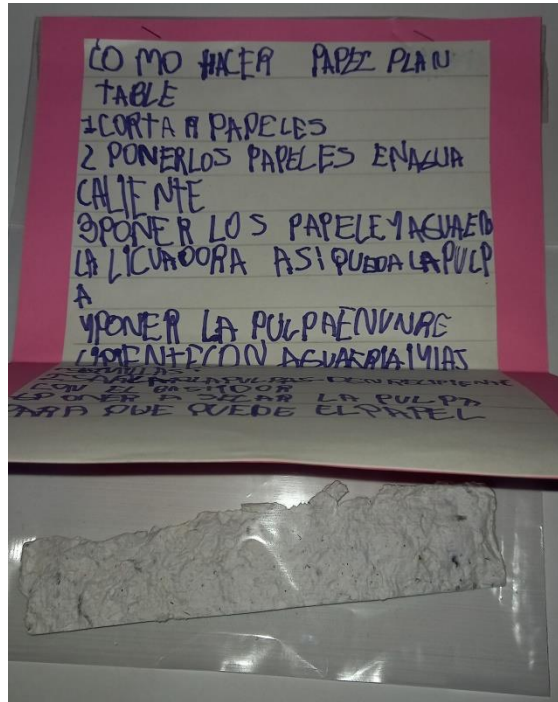 COMO HACER PAPEL PLAN
TABLE
1 CORTAR PAPELES
2 PONERLOS PAPELES EN AGUA
CALIENTE
3 PONER LOS PAPELE Y AGUA EN
LA LICUADORA ASI QUEDA LA PULP
A
4 PONER LA PULPA EN UN RE
CIPIENTE CON AGUA FRIA Y LAS
SEMILLAS.
LA PULPA DEN RECIPIENTE
CON EL BASTIDOR
PONER A SECAR LA PULPA
PARA QUE QUEDE EL PAPEL